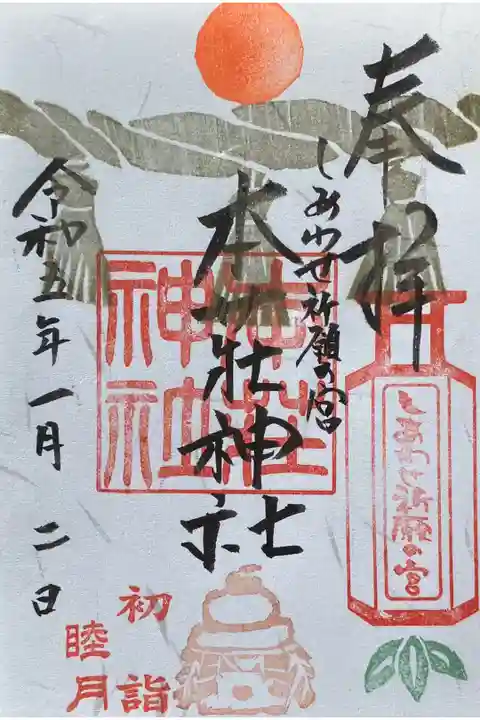 奉拝
しあわせ祈願の宮
本荘神社
令和五年一月二日
本荘
神社
しあわせ祈願の宮
初詣
睦月